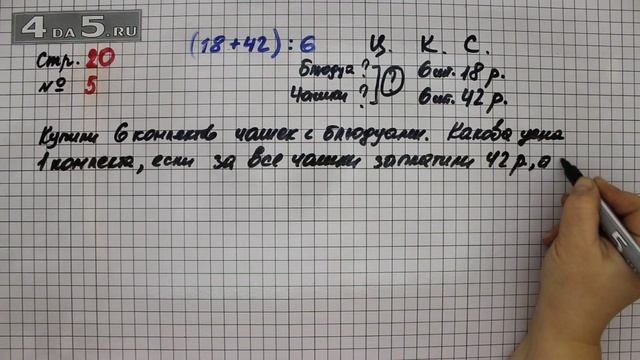 4DA5.RU
Стр. 20
№ 5
(18+42) : 6
Ц. К. С.
Блюдца ? 6 шт. 18 р.
Чашки ? 6 шт. 42 р.
?
Купили 6 комплектов чашек с блюдцами. Какова цена
1 комплекта, если за все чашки заплатили 42 р, а